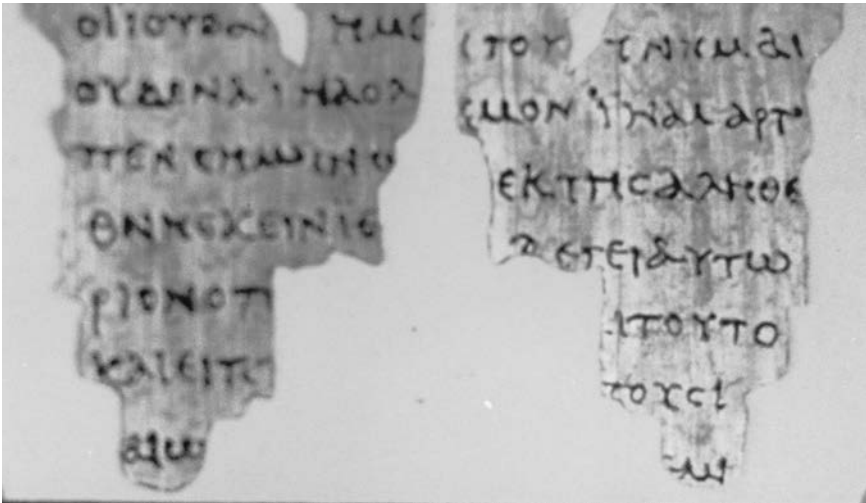 ΟΙ ΙΟΥΔΑΙ ΗΜΕ
ΟΥΔΕΝΑ ΙΝΑ Ο Λ
ΠΕΝ ΣΗΜΑΙΝΩ
ΘΝΗΣΚΕΙΝ ΙΣ
ΡΙΟΝ Ο Π
ΚΑΙ ΕΙΠ
ΑΙΩ
ΤΟΥ ΝΝΗΜΑΙ
ΣΜΟΝ ΙΝΑ ΜΑΡΤΥ
ΕΚ ΤΗΣ ΑΛΗΘΕ
ΛΕΓΕΙ ΑΥΤΩ
ΑΙ ΤΟΥΤΟ
ΤΟΥΣ Ι
ΜΙ